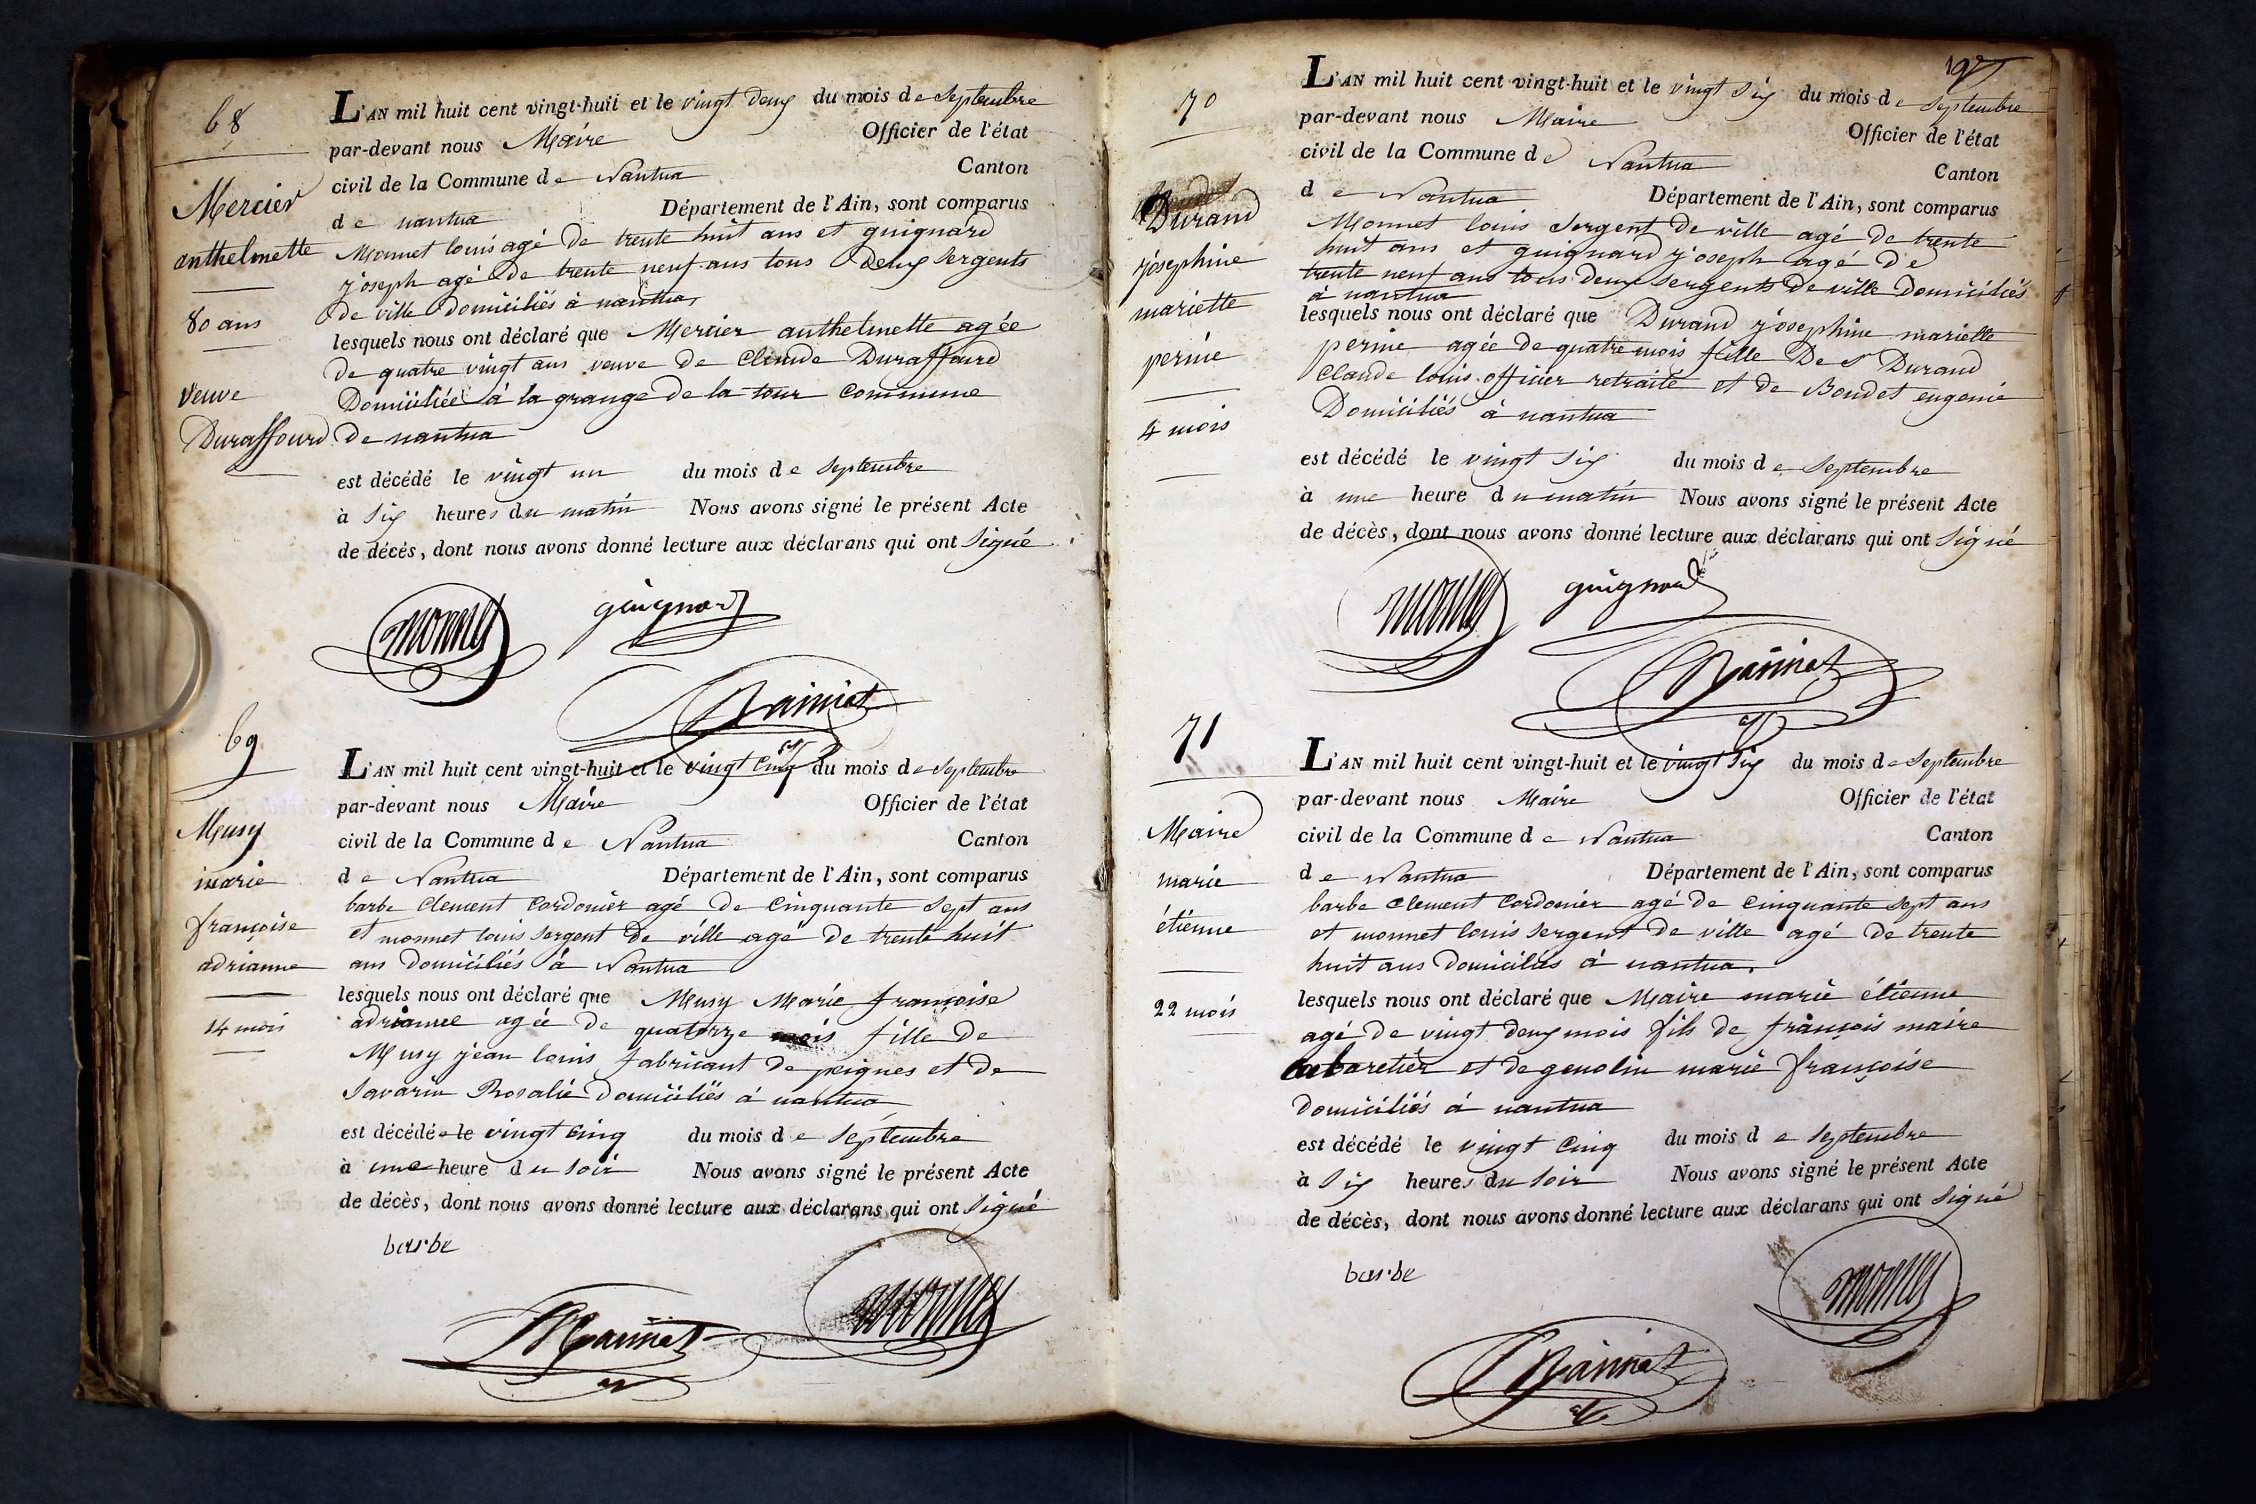 68
Mercier
anthelmette
80 ans
veuve
Duraffourd
L'AN mil huit cent vingt-huit et le vingt deux du mois de Septembre
par-devant nous Maire Officier de l'état
civil de la Commune de Nantua Canton
de nantua Département de l'Ain, sont comparus
Monnet louis agé de trente huit ans et guignard
joseph agé de trente neuf ans tous deux Sergents
de ville domiciliés à nantua,
lesquels nous ont déclaré que Mercier anthelmette agée
de quatre vingt ans veuve de Claude Duraffourd
Domiciliée à la grange de la tour commune
de nantua
est décédé le vingt un du mois de Septembre
à Six heures du matin Nous avons signé le présent Acte
de décès, dont nous avons donné lecture aux déclarans qui ont Signé
monnet guignard
69
Musy
marie
françoise
adrianne
14 mois
L'AN mil huit cent vingt-huit et le vingt Cinq du mois de Septembre
par-devant nous Maire Officier de l'état
civil de la Commune de Nantua Canton
de Nantua Département de l'Ain, sont comparus
barbe Clement Cordonier agé de Cinquante Sept ans
et monnet louis Sergent de ville agé de trente huit
ans domiciliés à Nantua
lesquels nous ont déclaré que Musy Marie françoise
adrianne agée de quatorze mois fille de
Musy jean louis fabricant de peignes et de
Savarin Rosalie domiciliés à nantua
est décédée le vingt Cinq du mois de Septembre
à une heure du Soir Nous avons signé le présent Acte
de décès, dont nous avons donné lecture aux déclarans qui ont Signé
barbe
monnet
197
70
Durand
josephine
mariette
perine
4 mois
L'AN mil huit cent vingt-huit et le vingt Six du mois de Septembre
par-devant nous Maire Officier de l'état
civil de la Commune de Nantua Canton
de Nantua Département de l'Ain, sont comparus
Monnet louis Sergent de ville agé de trente
huit ans et guignard joseph agé de
trente neuf ans tous deux Sergents de ville Domiciliés
à nantua
lesquels nous ont déclaré que Durand josephine mariette
perine agée de quatre mois fille De S Durand
Claude louis officier retraité et de Bondet eugenie
Domiciliés à nantua
est décédé le vingt Six du mois de Septembre
à une heure du matin Nous avons signé le présent Acte
de décès, dont nous avons donné lecture aux déclarans qui ont Signé
monnet guignard
71
Maire
marie
étienne
22 mois
L'AN mil huit cent vingt-huit et le vingt Six du mois de Septembre
par-devant nous Maire Officier de l'état
civil de la Commune de Nantua Canton
de Nantua Département de l'Ain, sont comparus
barbe Clement Cordonier agé de Cinquante Sept ans
et monnet louis Sergent de ville agé de trente
huit ans Domiciliés à nantua.
lesquels nous ont déclaré que Maire marie étienne
agé de vingt deux mois fils de françois maire
Cabaretier et de genolin marie françoise
domiciliés à nantua
est décédé le vingt Cinq du mois de Septembre
à Six heures du Soir Nous avons signé le présent Acte
de décès, dont nous avons donné lecture aux déclarans qui ont Signé
barbe
monnet